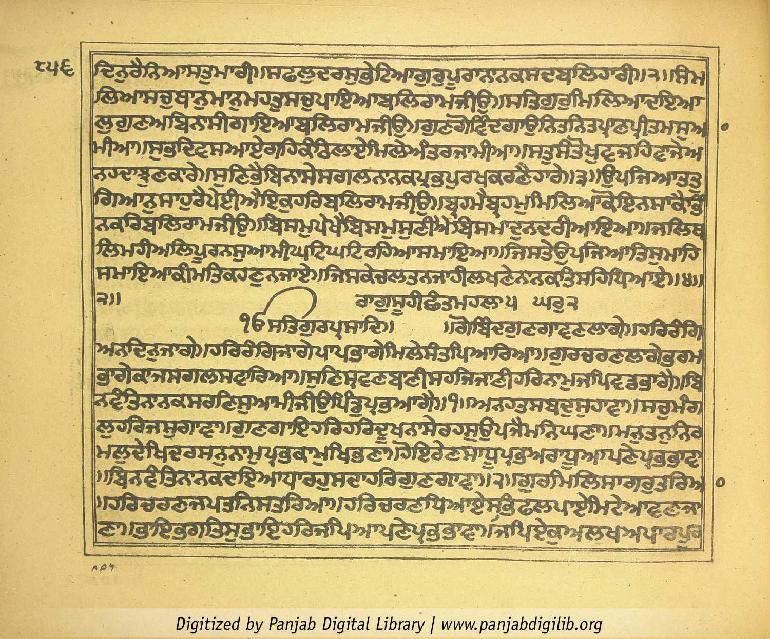 ੮੫੬
ਦਿਨੁਰੈਨਿਆਸਤੁਮਾਰੀ॥ਸਫਲੁਦਰਸੁਭੇਟਿਆਗੁਰੁਪੂਰਾਨਾਨਕਸਦਬਲਿਹਾਰੀ॥੨॥ਮਿ
ਲਿਆਸਚੁਥਾਨੁਮਾਨੁਮਹਤੁਸਚੁਪਾਇਆਬਲਿਰਾਮਜੀਉ॥ਸਤਿਗੁਰੁਮਿਲਿਆਦਇਆ
ਲੁਗੁਣਅਬਿਨਾਸੀਗਾਇਆਬਲਿਰਾਮਜੀਉ॥ਗੁਣਗੋਵਿੰਦਗਾਉਨਿਤਨਿਤਪ੍ਰਾਣਪ੍ਰੀਤਮਸੁਆ
ਮੀਆ॥ਸੁਭਦਿਵਸਆਏਗਹਿਕੰਠਿਲਾਏਮਿਲੇਅੰਤਰਜਾਮੀਆ॥ਸਤੁਸੰਤੋਖੁਵਜਹਿਵਾਜੇਅ
ਨਹਦਾਝੁਣਕਾਰੇ॥ਸੁਣਿਭੈਬਿਨਾਸੇਸਗਲਨਾਨਕਪ੍ਰਭਪੁਰਖਕਰਣੈਹਾਰੇ॥੩॥ਉਪਜਿਆਤਤੁ
ਗਿਆਨੁਸਾਹੁਰੈਪੇਈਐਇਕੁਹਰਿਬਲਿਰਾਮਜੀਉ॥ਬ੍ਰਹਮੈਬ੍ਰਹਮੁਮਿਲਿਆਕੋਇਨਸਾਕੈਭਿੰ
ਨਕਰਿਬਲਿਰਾਮਜੀਉ॥ਬਿਸਮੁਪੇਖੈਬਿਸਮੁਸੁਣੀਐਬਿਸਮਾਦੁਨਦਰੀਆਇਆ॥ਜਲਿਥ
ਲਿਮਹੀਅਲਿਪੂਰਨਸੁਆਮੀਘਟਿਘਟਿਰਹਿਆਸਮਾਇਆ॥ਜਿਸਤੇਉਪਜਿਆਤਿਸੁਮਾਹਿ
ਸਮਾਇਆਕੀਮਤਿਕਹਣੁਨਜਾਏ॥ਜਿਸਕੇਚਲਤਨਜਾਹੀਲਖਣੇਨਾਨਕਤਿਸਹਿਧਿਆਏ॥੪॥
੨॥ ਰਾਗੁਸੂਹੀਛੰਤਮਹਲਾ੫ ਘਰੁ੨
ੴਸਤਿਗੁਰਪ੍ਰਸਾਦਿ॥ ॥ਗੋਬਿੰਦਗੁਣਗਾਵਣਲਾਗੇ॥ਹਰਿਰੰਗਿ
ਅਨਦਿਨੁਜਾਗੇ॥ਹਰਿਰੰਗਿਜਾਗੇਪਾਪਭਾਗੇਮਿਲੇਸੰਤਪਿਆਰਿਆ॥ਗੁਰਚਰਣਲਾਗੇਭਰਮ
ਭਾਗੇਕਾਜਸਗਲਸਵਾਰਿਆ॥ਸੁਣਿਸ੍ਰਵਣਬਾਣੀਸਹਜਿਜਾਣੀਹਰਿਨਾਮੁਜਪਿਵਡਭਾਗੈ॥ਬਿ
ਨਵੰਤਿਨਾਨਕਸਰਣਿਸੁਆਮੀਜੀਉਪਿੰਡੁਪ੍ਰਭਆਗੈ॥੧॥ਅਨਹਤਸਬਦੁਸੁਹਾਵਾ॥ਸਚੁਮੰਗ
ਲੁਹਰਿਜਸੁਗਾਵਾ॥ਗੁਣਗਾਇਹਰਿਹਰਿਦੂਖਨਾਸੇਰਹਸੁਉਪਜੈਮਨਿਘਣਾ॥ਮਨੁਤੰਨੁਨਿਰ
ਮਲੁਦੇਖਿਦਰਸਨੁਨਾਮੁਪ੍ਰਭਕਾਮੁਖਿਭਣਾ॥ਹੋਇਰੇਣਸਾਧੂਪ੍ਰਭਅਰਾਧੂਆਪਣੇਪ੍ਰਭਭਾਵਾ
॥ਬਿਨਵੰਤਿਨਾਨਕਦਇਆਧਾਰਹੁਸਦਾਹਰਿਗੁਣਗਾਵਾ॥੨॥ਗੁਰਮਿਲਿਸਾਗਰੁਤਰਿਆ
॥ਹਰਿਚਰਣਜਪਤਨਿਸਤਰਿਆ॥ਹਰਿਚਰਣਧਿਆਏਸਭਿਫਲਪਾਏਮਿਟੇਆਵਣਜਾ
ਣਾ॥ਭਾਇਭਗਤਿਸੁਭਾਇਹਰਿਜਪਿਆਪਣੇਪ੍ਰਭਭਾਵਾ॥ਜਪਿਏਕੁਅਲਖਅਪਾਰਪੂਰ
Digitized by Panjab Digital Library | www.panjabdigilib.org